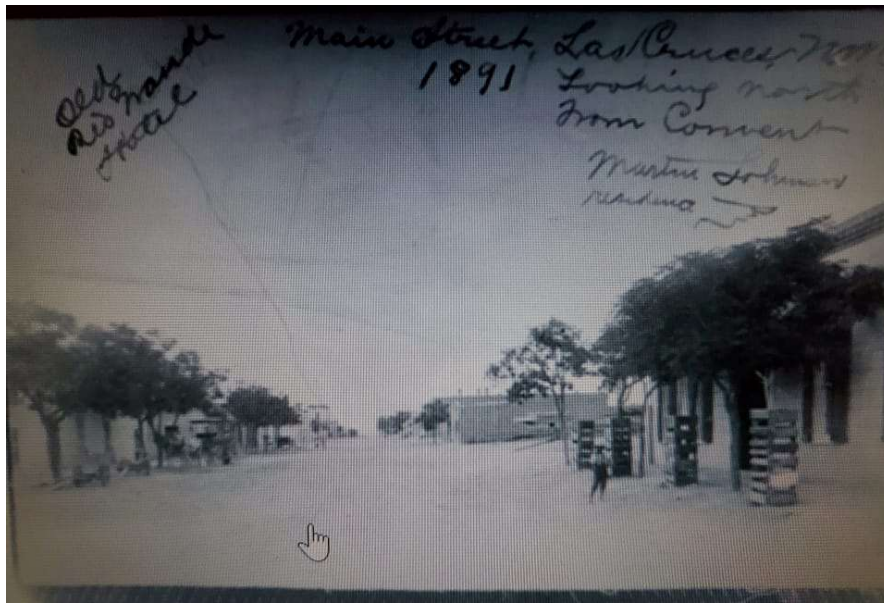 Old
Rio Grande
Hotel
Main Street, Las Cruces, NM
1891
Looking north
From Convent
Martin Lohman
residence